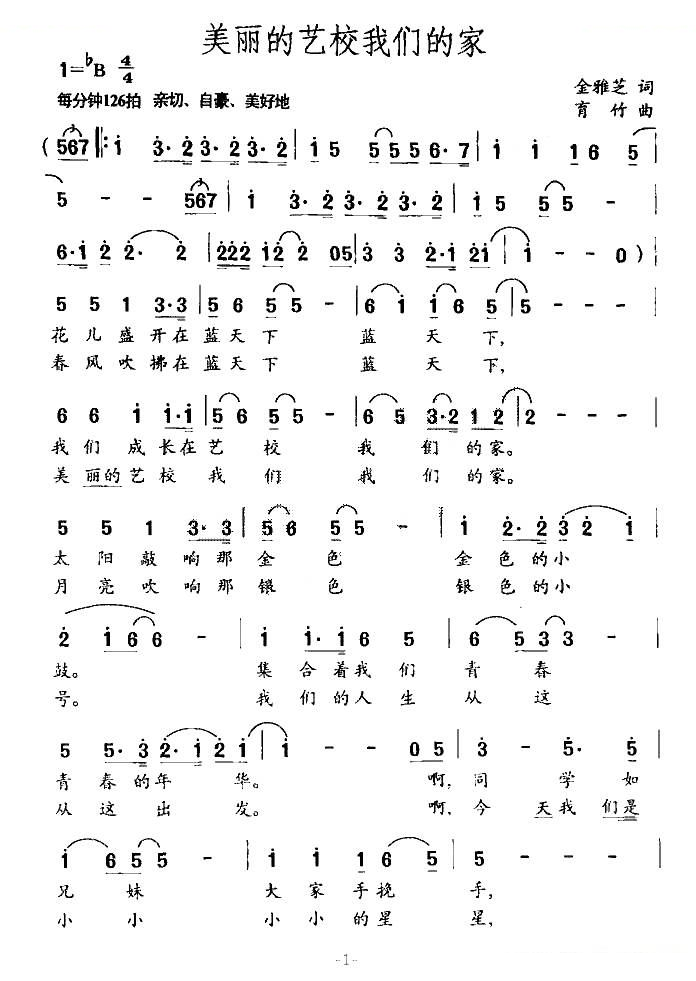 美丽的艺校我们的家
1=♭B 4/4
金雅芝 词
每分钟126拍 亲切、自豪、美好地
育竹 曲
(567‖:i 3·2 3·2 3·2 | i 5 5 5 5 6·7 | i i 1 6 5 |
5 - - 567 | i 3·2 3·2 3·2 | i 5 5 5 - |
6·i 2 2· 2 | 2 2 2 i 2 2 0 5 | 3 3 2·i 2 i | i - - 0 ) |
5 5 1 3·3 | 5 6 5 5 - | 6 i i 6 5 | 5 - - |
花儿盛开在蓝天下 蓝天下,
春风吹拂在蓝天下 蓝天下,
6 6 i i·i | 5 6 5 5 - | 6 5 3·2 1 2 | 2 - - |
我们成长在艺校 我们的家。
美丽的艺校我们 我们的家。
5 5 1 3·3 | 5 6 5 5 - | i 2·2 3 2 i |
太阳敲响那金色 金色的小
月亮吹响那银色 银色的小
2 i 6 6 - | i i·i 6 5 | 6 5 5 3 3 - |
鼓。 集合着我们青春
号。 我们的人生从这
5 5·3 2·i 2 i | i - - 0 5 | 3 - 5· 5 |
青春的年华。 啊,同学如
从这出发。 啊,今天我们是
i 6 5 5 - | i i 1 6 5 | 5 - - - |
兄妹 大家手挽手,
小小 小小的星星,
-1-